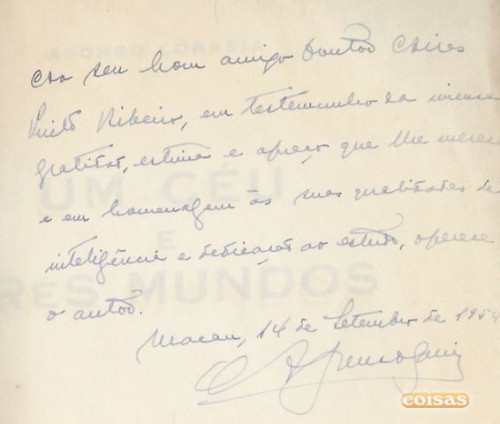 AFONSO CORREIA
Ao seu bom amigo Doutor Aires
Pinto Ribeiro, em testemunho da imensa
gratidão, estima e apreço que lhe merece
e em homenagem às suas qualidades de
UM CÉU
E
inteligência e dedicação ao estudo, oferece
TRES MUNDOS
o autor.
Macau, 14 de Setembro de 1954
coisas